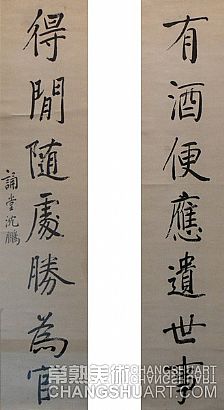 有酒便應遺世事
得閒隨處勝為官
誦堂沈鵬
常熟美術
CHANGSHUART
CHANGSHUART.COM